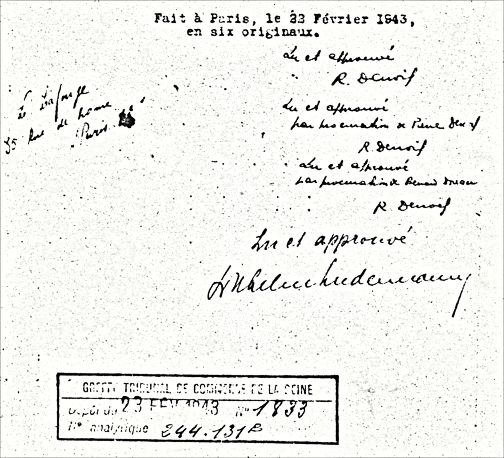 Fait à Paris, le 22 Février 1943,
en six originaux.
Lu et approuvé
R. Denoël
Lu et approuvé
par procuration de Pierre Denoël
R. Denoël
Lu et approuvé
par procuration de
R. Denoël
Lu et approuvé
35 Rue de
Paris
GREFFE TRIBUNAL DE COMMERCE DE LA SEINE
Dépôt du 23 FEV 1943 N° 1833
N° analytique 244.131 B